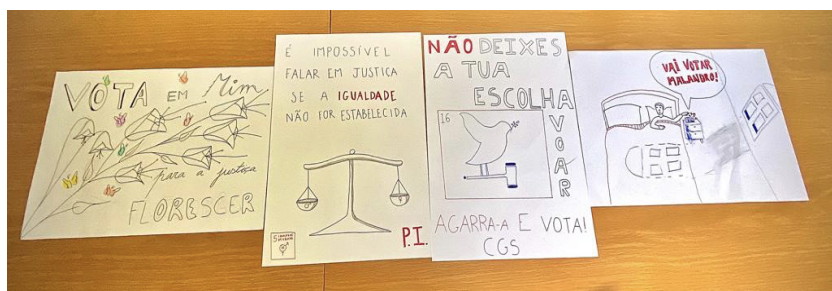 VOTA EM Mim
para a justiça
FLORESCER
É IMPOSSÍVEL
FALAR EM JUSTIÇA
SE A IGUALDADE
NÃO FOR ESTABELECIDA
P.I.
NÃO DEIXES
A TUA
ESCOLHA
VOAR
16
AGARRA-A E VOTA!
CGS
VAI VOTAR
MALANDRO!